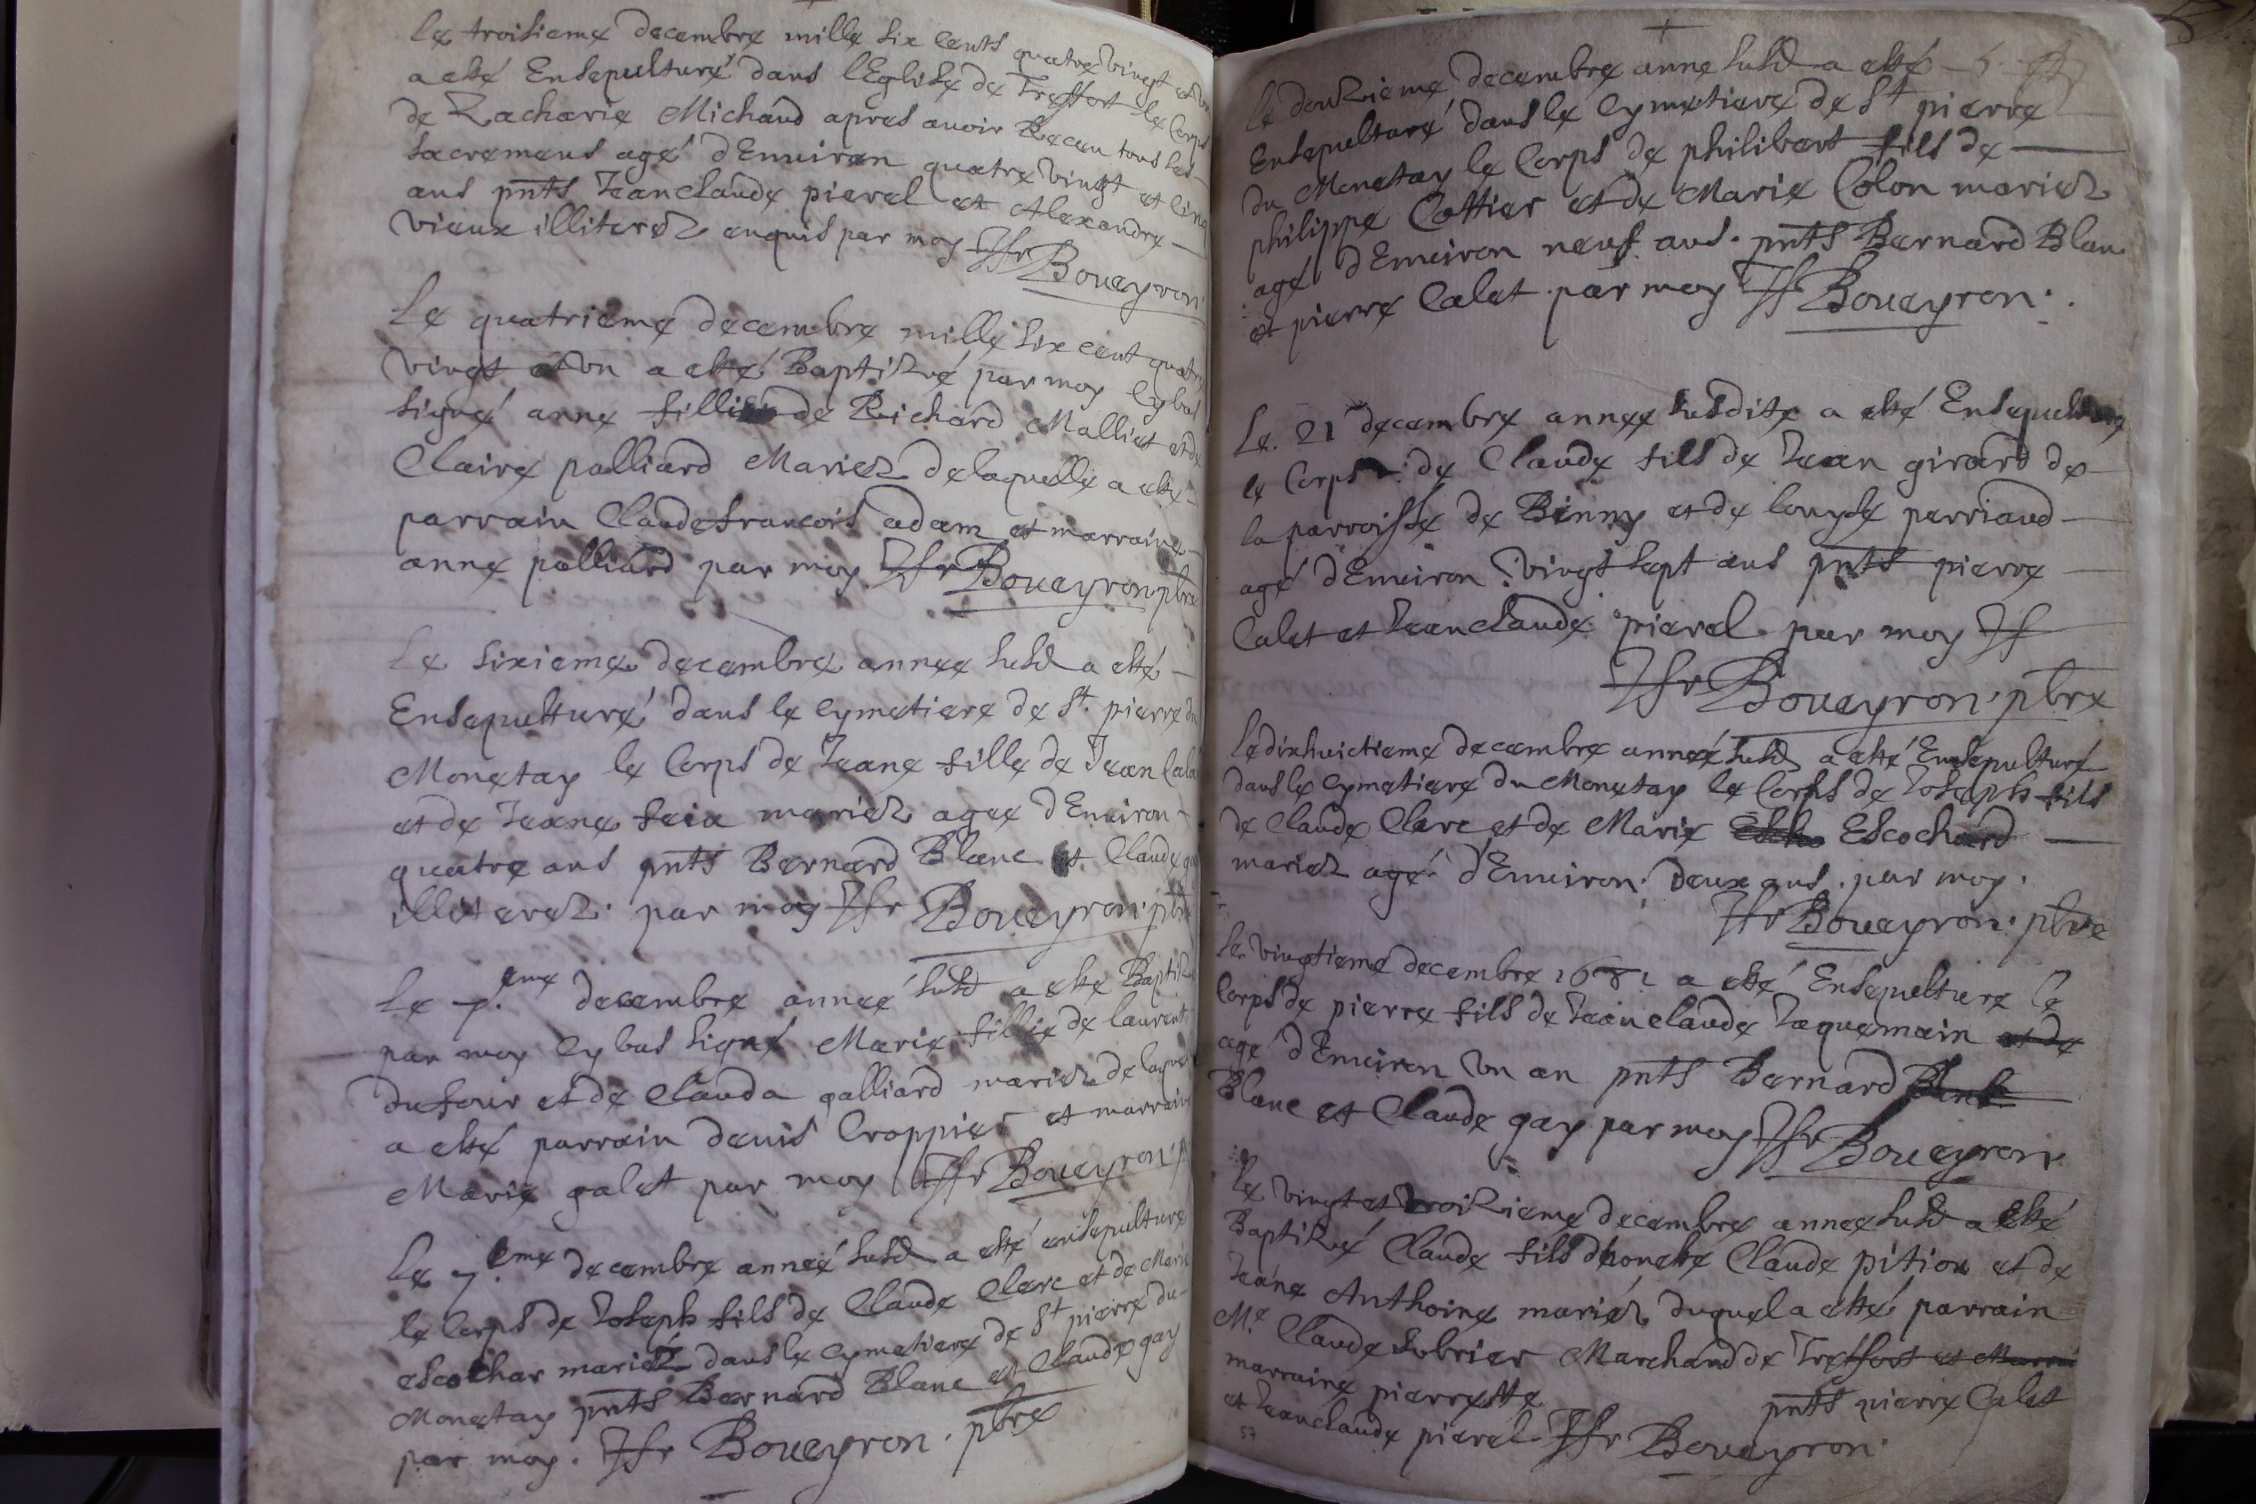 le troisieme decembre mille six cents quatre vingt et un
a esté Ensepulturé dans l'Eglise de Treffort le Corps
de Zacharie Michaud apres auoir Receu tous les
sacremens agé d'Enuiron quatre vingt et cinq
ans pnts Jean Claude pierel et Alexandre
vieux illiterez enquis par moy Jfr Boueyron
Le quatrieme decembre mille six cent quatre
vingt et vn a esté Baptizé par moy cy bas
signé anne fillie de Richard Malliet et de
Claire palliard Mariez de laquelle a esté
parrain Claude francois adam et marraine
anne palliard par moy Jfr Boueyron pbre
Le sixieme decembre annee susd a esté
Ensepulturé dans le cymetiere de St. pierre du
Monetay le Corps de Jeane fille de Jean Cala
et de Jeane feia mariez agee d'Enuiron
quatre ans pnts Bernard Blanc et Claude gay
illiterez. par moy Jfr Boueyron. pbre
Le 7.eme decembre anneé susd a esté Baptizé
par moy cy bas signé Marie fillie de laurent
dufour et de Clauda galliard mariez de laquelle
a esté parrain denis Croppier et marraine
Marie galet par moy Jfr Boueyron p
Le 7.eme decembre anneé susd a esté ensepulturé
le Corps de Joseph fils de Claude Clerc et de Marie
escochar mariez dans le cymetiere de St pierre du
Monetay pnts Bernard Blanc et Claude gay
par moy. Jfr Boueyron. pbre
le douzieme decembre anne susd a esté
Ensepulturé dans le cymetiere de St pierre
du Monetay le Corps de philibert fils de
philippe Cottier et de Marie Colon mariez
agé d'Enuiron neuf ans. pnts Bernard Blanc
et pierre Calet par moy Jfr Boueyron.
Le. 21 decembre annee susdite a esté Ensepulture
le Corps de Claude fils de Jean girard de
la parroisse de Benny et de louyse perriaud
agé d'Enuiron vingt sept ans pnts pierre
Calet et Jean claude pierel par moy Jf
Jfr Boueyron. pbre
le dixhuictieme decembre anneé susd a esté Ensepulturé
dans le cymetiere du Monetay le Corps de Joseph fils
de Claude Clerc et de Marie Escochard
mariez agé d'Enuiron deux ans. par moy.
Jfr Boueyron. pbre
Le vingtieme decembre 1681 a esté Ensepulture le
Corps de pierre fils de Jean claude Jaquemain et de
agé d'Enuiron vn an pnts Bernard
Blanc et Claude gay par moy Jfr Boueyron
Le vingt et troizieme decembre annee susd a esté
Baptizé Claude fils d'honeste Claude pition et de
Jeane Anthoine mariez duquel a esté parrain
Me. Claude Sobrier Marchand de Treffort et Marrai
marraine pierrette pnts pierre Calet
et Jean claude pierel. Jfr Boueyron.
57